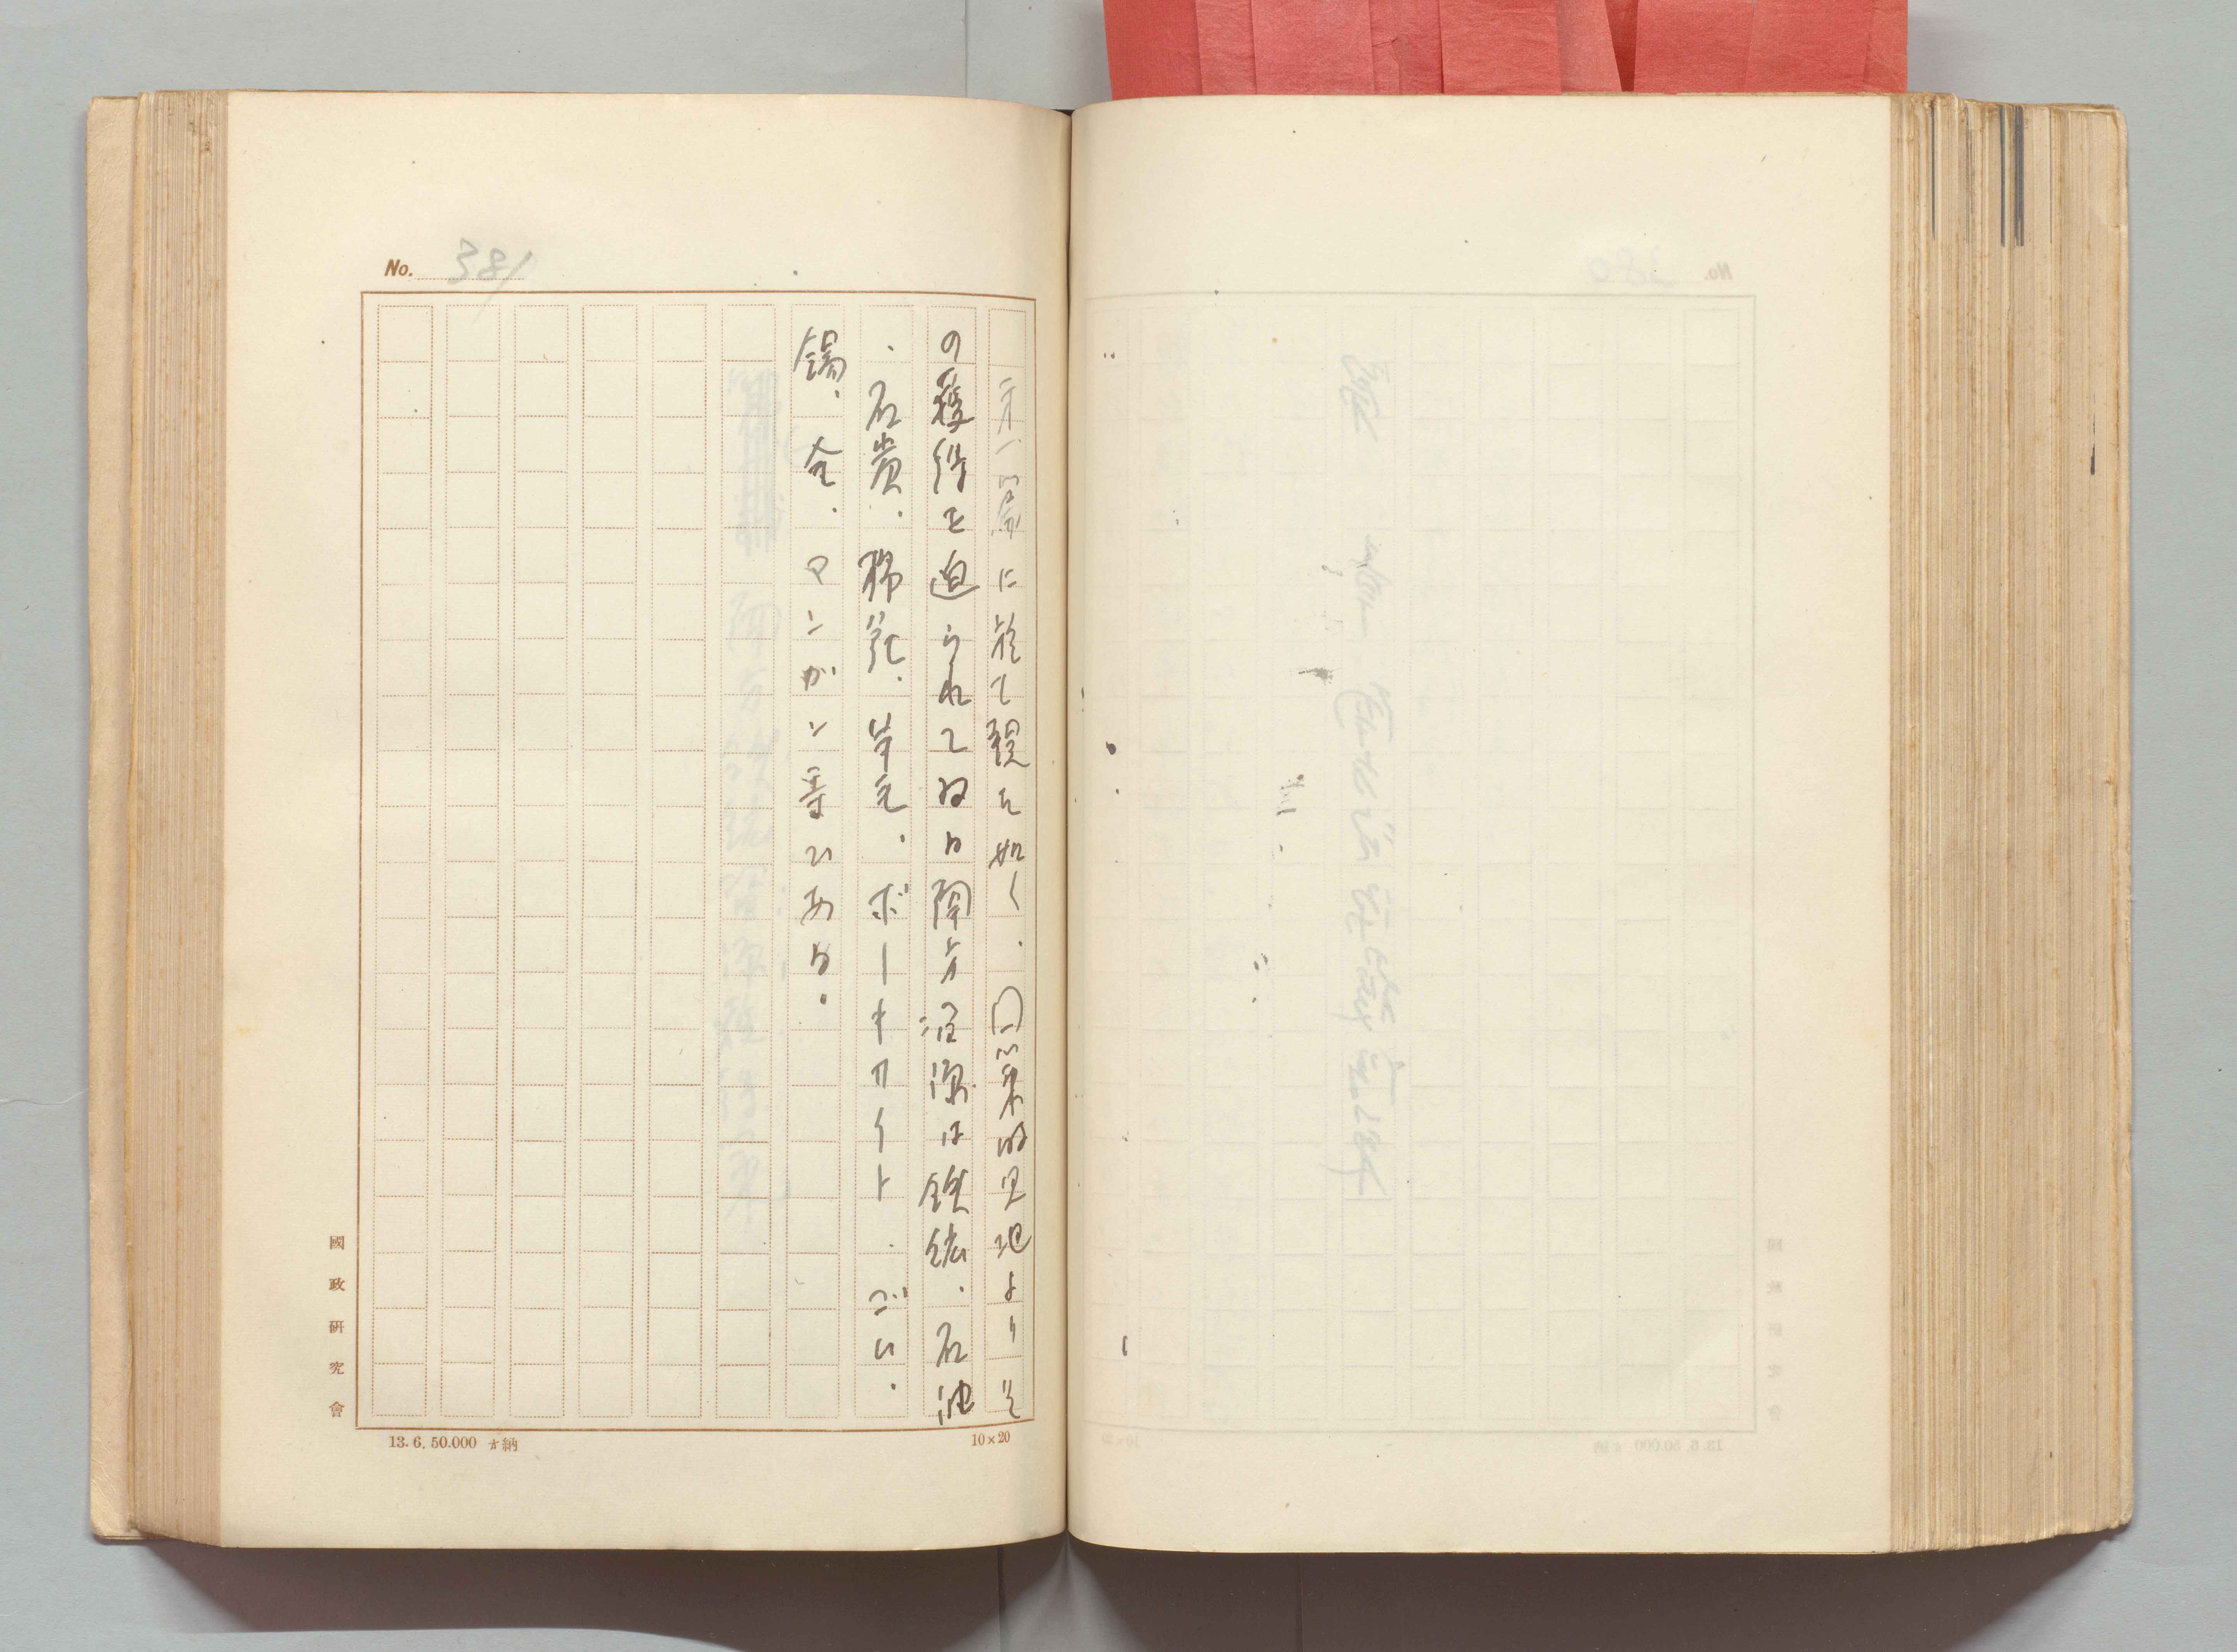 No. 381
に於て説た如く、国策的見地より其
の獲得を迫られてゐる南方資源は鉄鉱、石油
、石炭、棉花、羊毛、ボーキサイト、ゴム、
錫、金、マンガン等である。
國政研究會
13.6.50.000 納
10×20